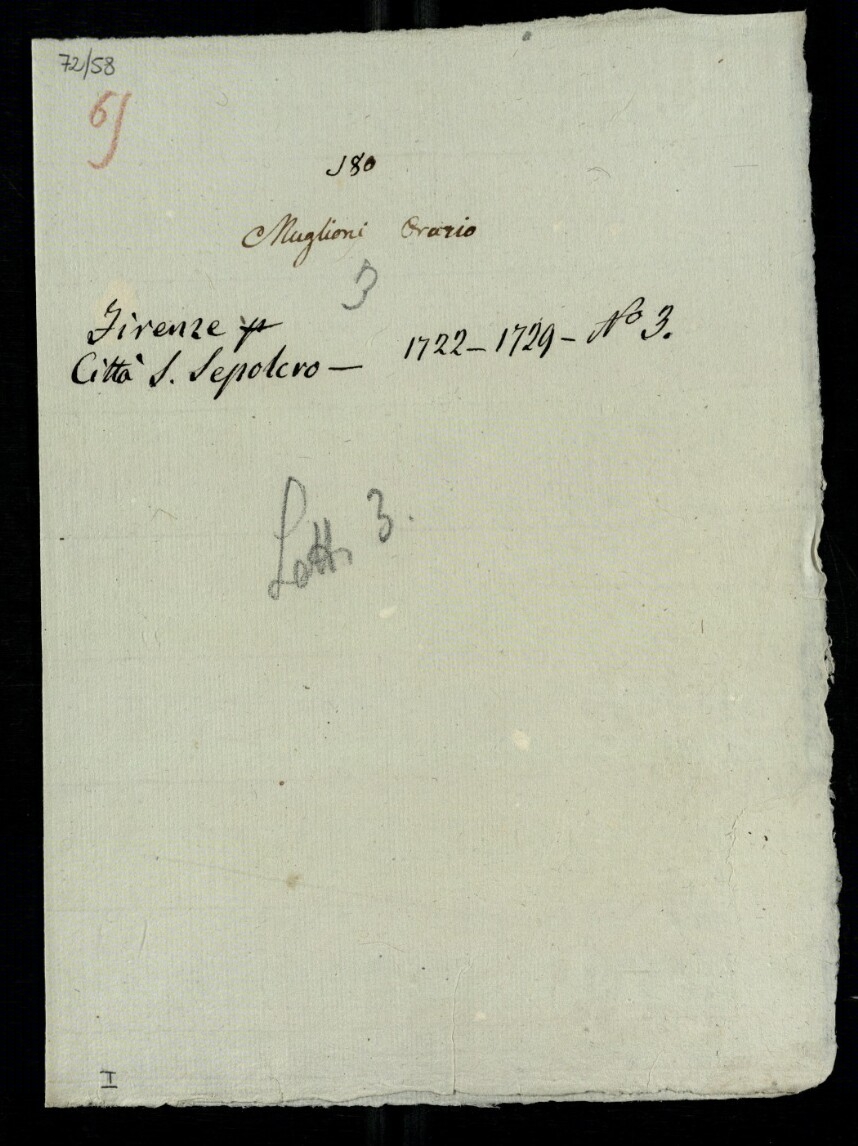 72/58
6)
180
Muglioni Orazio
3
Firenze p
Città S. Sepolcro — 1722 – 1729 – No 3.
Lett. 3.
I